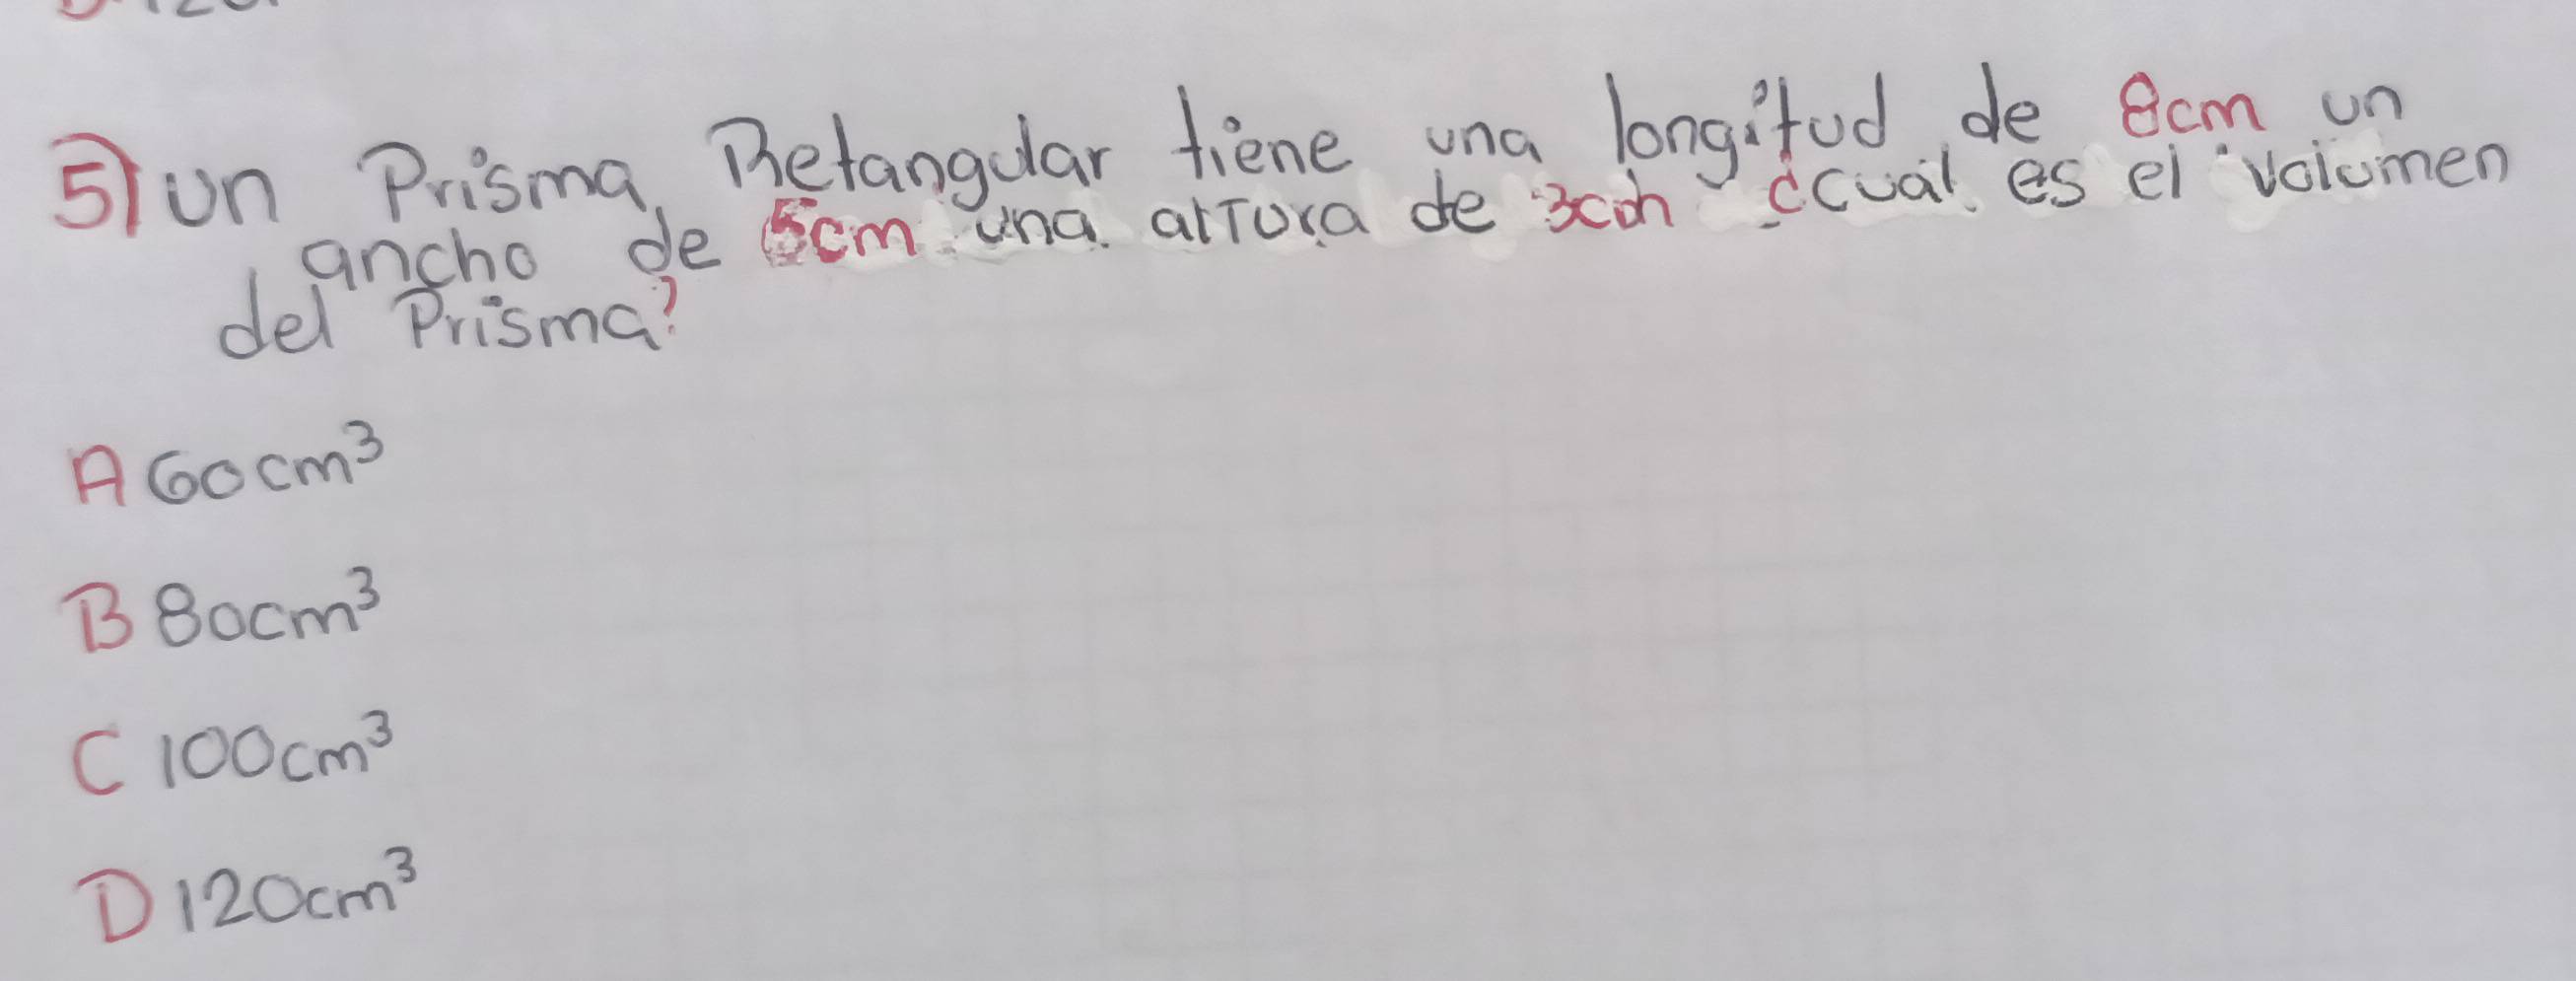 5) un Prisma Retangular tiene una longitud de 8cm un
ancho de 5cm una altura de 3cm ¿cual es el volumen
del Prisma?
A 60cm³
B 80cm³
C 100cm³
D 120cm³